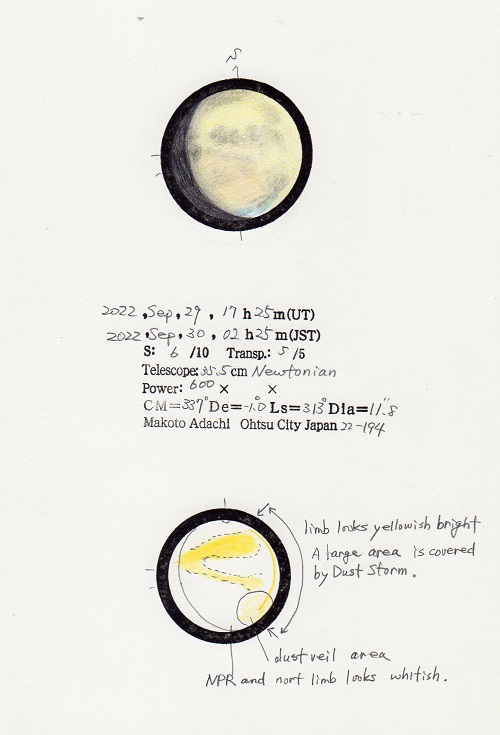 S
2022, Sep, 29, 17 h 25 m (UT)
2022, Sep, 30, 02 h 25 m (JST)
S: 6 /10 Transp.: 5 /5
Telescope: 35.5cm Newtonian
Power: 600 × ×
CM=337° De=-1.0° Ls=313° Dia=11.″8
Makoto Adachi Ohtsu City Japan 22-194
limb looks yellowish bright
A large area is covered
by Dust Storm.
dust veil area
NPR and nort limb looks whitish.